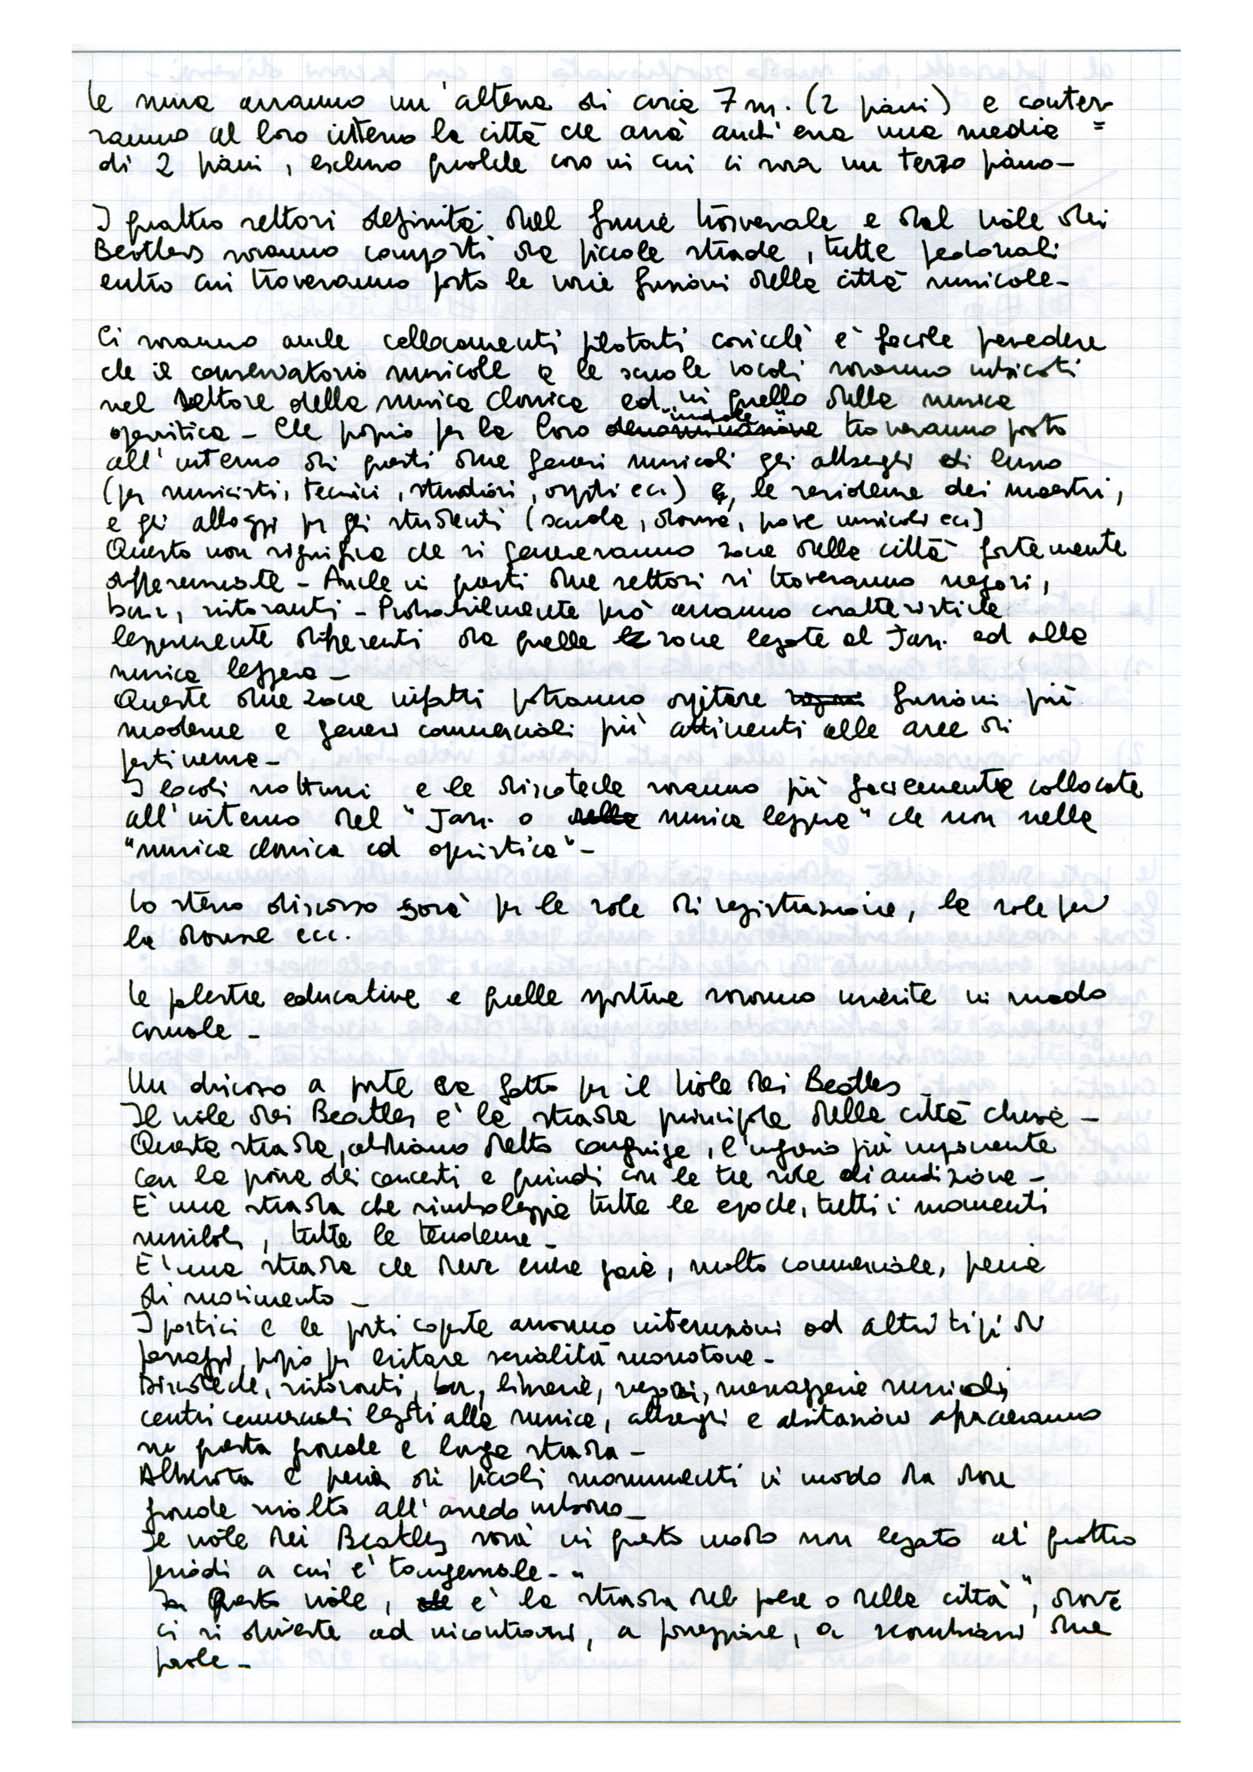 Le mura avranno un'altezza di circa 7 m. (2 piani) e conter=
ranno al loro interno la città che avrà anch'essa una media
di 2 piani, escluso qualche caso in cui ci sarà un terzo piano-
I quattro settori definiti dal fiume trasversale e dal viale dei
Beatles saranno composti da piccole strade, tutte pedonali
entro cui troveranno posto le varie funzioni della città musicale-
Ci saranno anche collocamenti pilotati cosicchè è facile prevedere
che il conservatorio musicale e le scuole vocali saranno ubicati
nel settore della musica classica ed in quello della musica
operistica - Che proprio per la loro "indole" troveranno posto
all'interno di questi due generi musicali gli alberghi di lusso
(per musicisti, tecnici, studiosi, ospiti ecc) e, le residenze dei maestri,
e gli alloggi per gli studenti (scuola, danza, prove musicali ecc)
Questo non significa che si genereranno zone della città fortemente
differenziate - Anche in questi due settori si troveranno negozi,
bar, ristoranti - Probabilmente però avranno caratteristiche
leggermente differenti da quelle zone legate al Jazz. ed alla
musica leggera -
Queste due zone infatti potranno ospitare funzioni più
moderne e generi commerciali più attinenti alle aree di
pertinenza -
I locali notturni e le discoteche saranno più facilmente collocate
all'interno del "Jazz. o musica leggera" che non nella
"musica classica ed operistica" -
Lo stesso discorso sarà per le sale di registrazione, le sale per
la danza ecc.
Le palestre educative e quelle sportive saranno inserite in modo
casuale -
Un discorso a parte va fatto per il Viale dei Beatles
Il viale dei Beatles è la strada principale della città che
Questa strada, abbiamo detto congiunge, l'ingresso più imponente
con la piazza dei concerti e quindi con le tre sale di audizione -
È una strada che simboleggia tutte le epoche, tutti i momenti
musicali, tutte le tendenze -
È una strada che deve essere gaia, molto commerciale, piena
di movimento -
I portici e le parti coperte avranno interruzioni ed altri tipi di
passaggi, proprio per evitare serialità monotone -
Discoteche, ristoranti, bar, librerie, negozi, musicali,
centri commerciali legati alla musica, alberghi e abitazioni appariranno
in questa grande e larga strada -
Alberata e piena di piccoli monumenti in modo da dare
grande risalto all'arredo urbano -
Il viale dei Beatles sarà in questo modo non legato ai quattro
periodi a cui è tangenziale -
Questo viale, è la strada del paese o della città", dove
ci si diverte ad incontrarsi, a passeggiare, a scambiarsi due
parole -